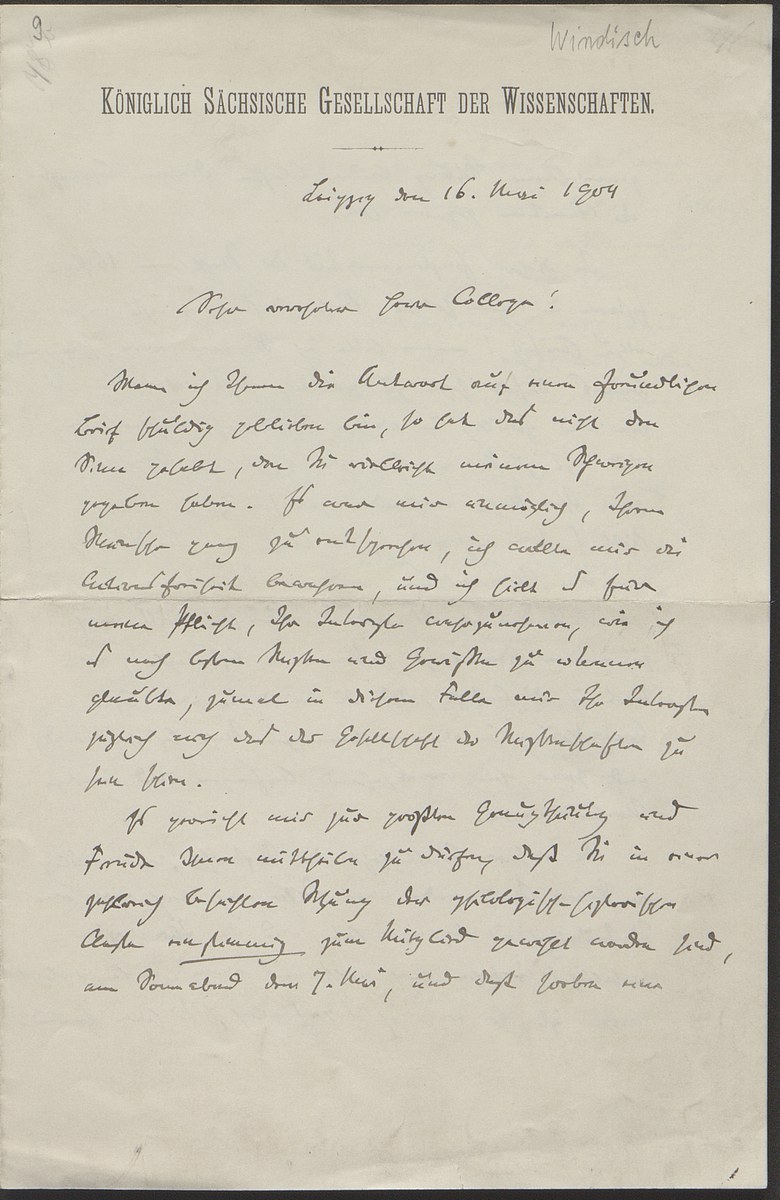 9
Windisch
KÖNIGLICH SÄCHSISCHE GESELLSCHAFT DER WISSENSCHAFTEN.
Leipzig den 16. Mai 1904
Sehr verehrter Herr College!
Wenn ich Ihnen die Antwort auf einen freundlichen
Brief schuldig geblieben bin, so hat das nicht den
Sinn gehabt, den Sie vielleicht meinem Schweigen
gegeben haben. Es war mir unmöglich, Ihrem
Wunsche ganz zu entsprechen, ich wollte mir die
bewahren, und ich hielt es für
meine Pflicht, Ihr Interesse wahrzunehmen, wie ich
es nach bestem Wissen und Gewissen zu erkennen
glaubte, zumal in diesem Falle mir Ihr Interesse
zugleich auch das der Gesellschaft der Wissenschaften zu
sein schien.
Es gereicht mir zur größten Genugthuung und
Freude Ihnen mittheilen zu dürfen, daß Sie in einer
zahlreich besuchten Sitzung der philologisch-historischen
Classe einstimmig zum Mitglied gewählt worden sind,
am Sonnabend den 7. Mai, und daß soeben eine